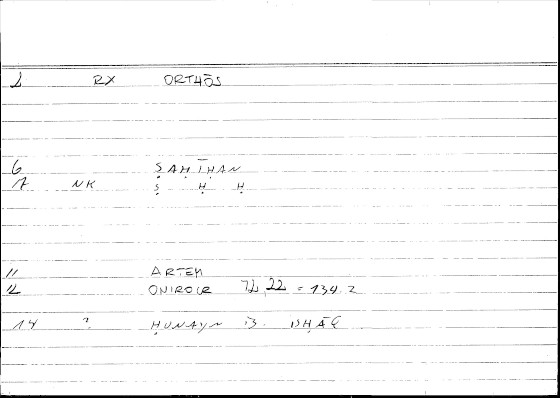 1 RX ORTHŌS
6 ṢAḤĪḤAN
7 NK Ṣ Ḥ Ḥ
11 ARTEM
12 ONIROCR 72,22 = 134.2
14 ? ḤUNAYN B. ISḤĀQ